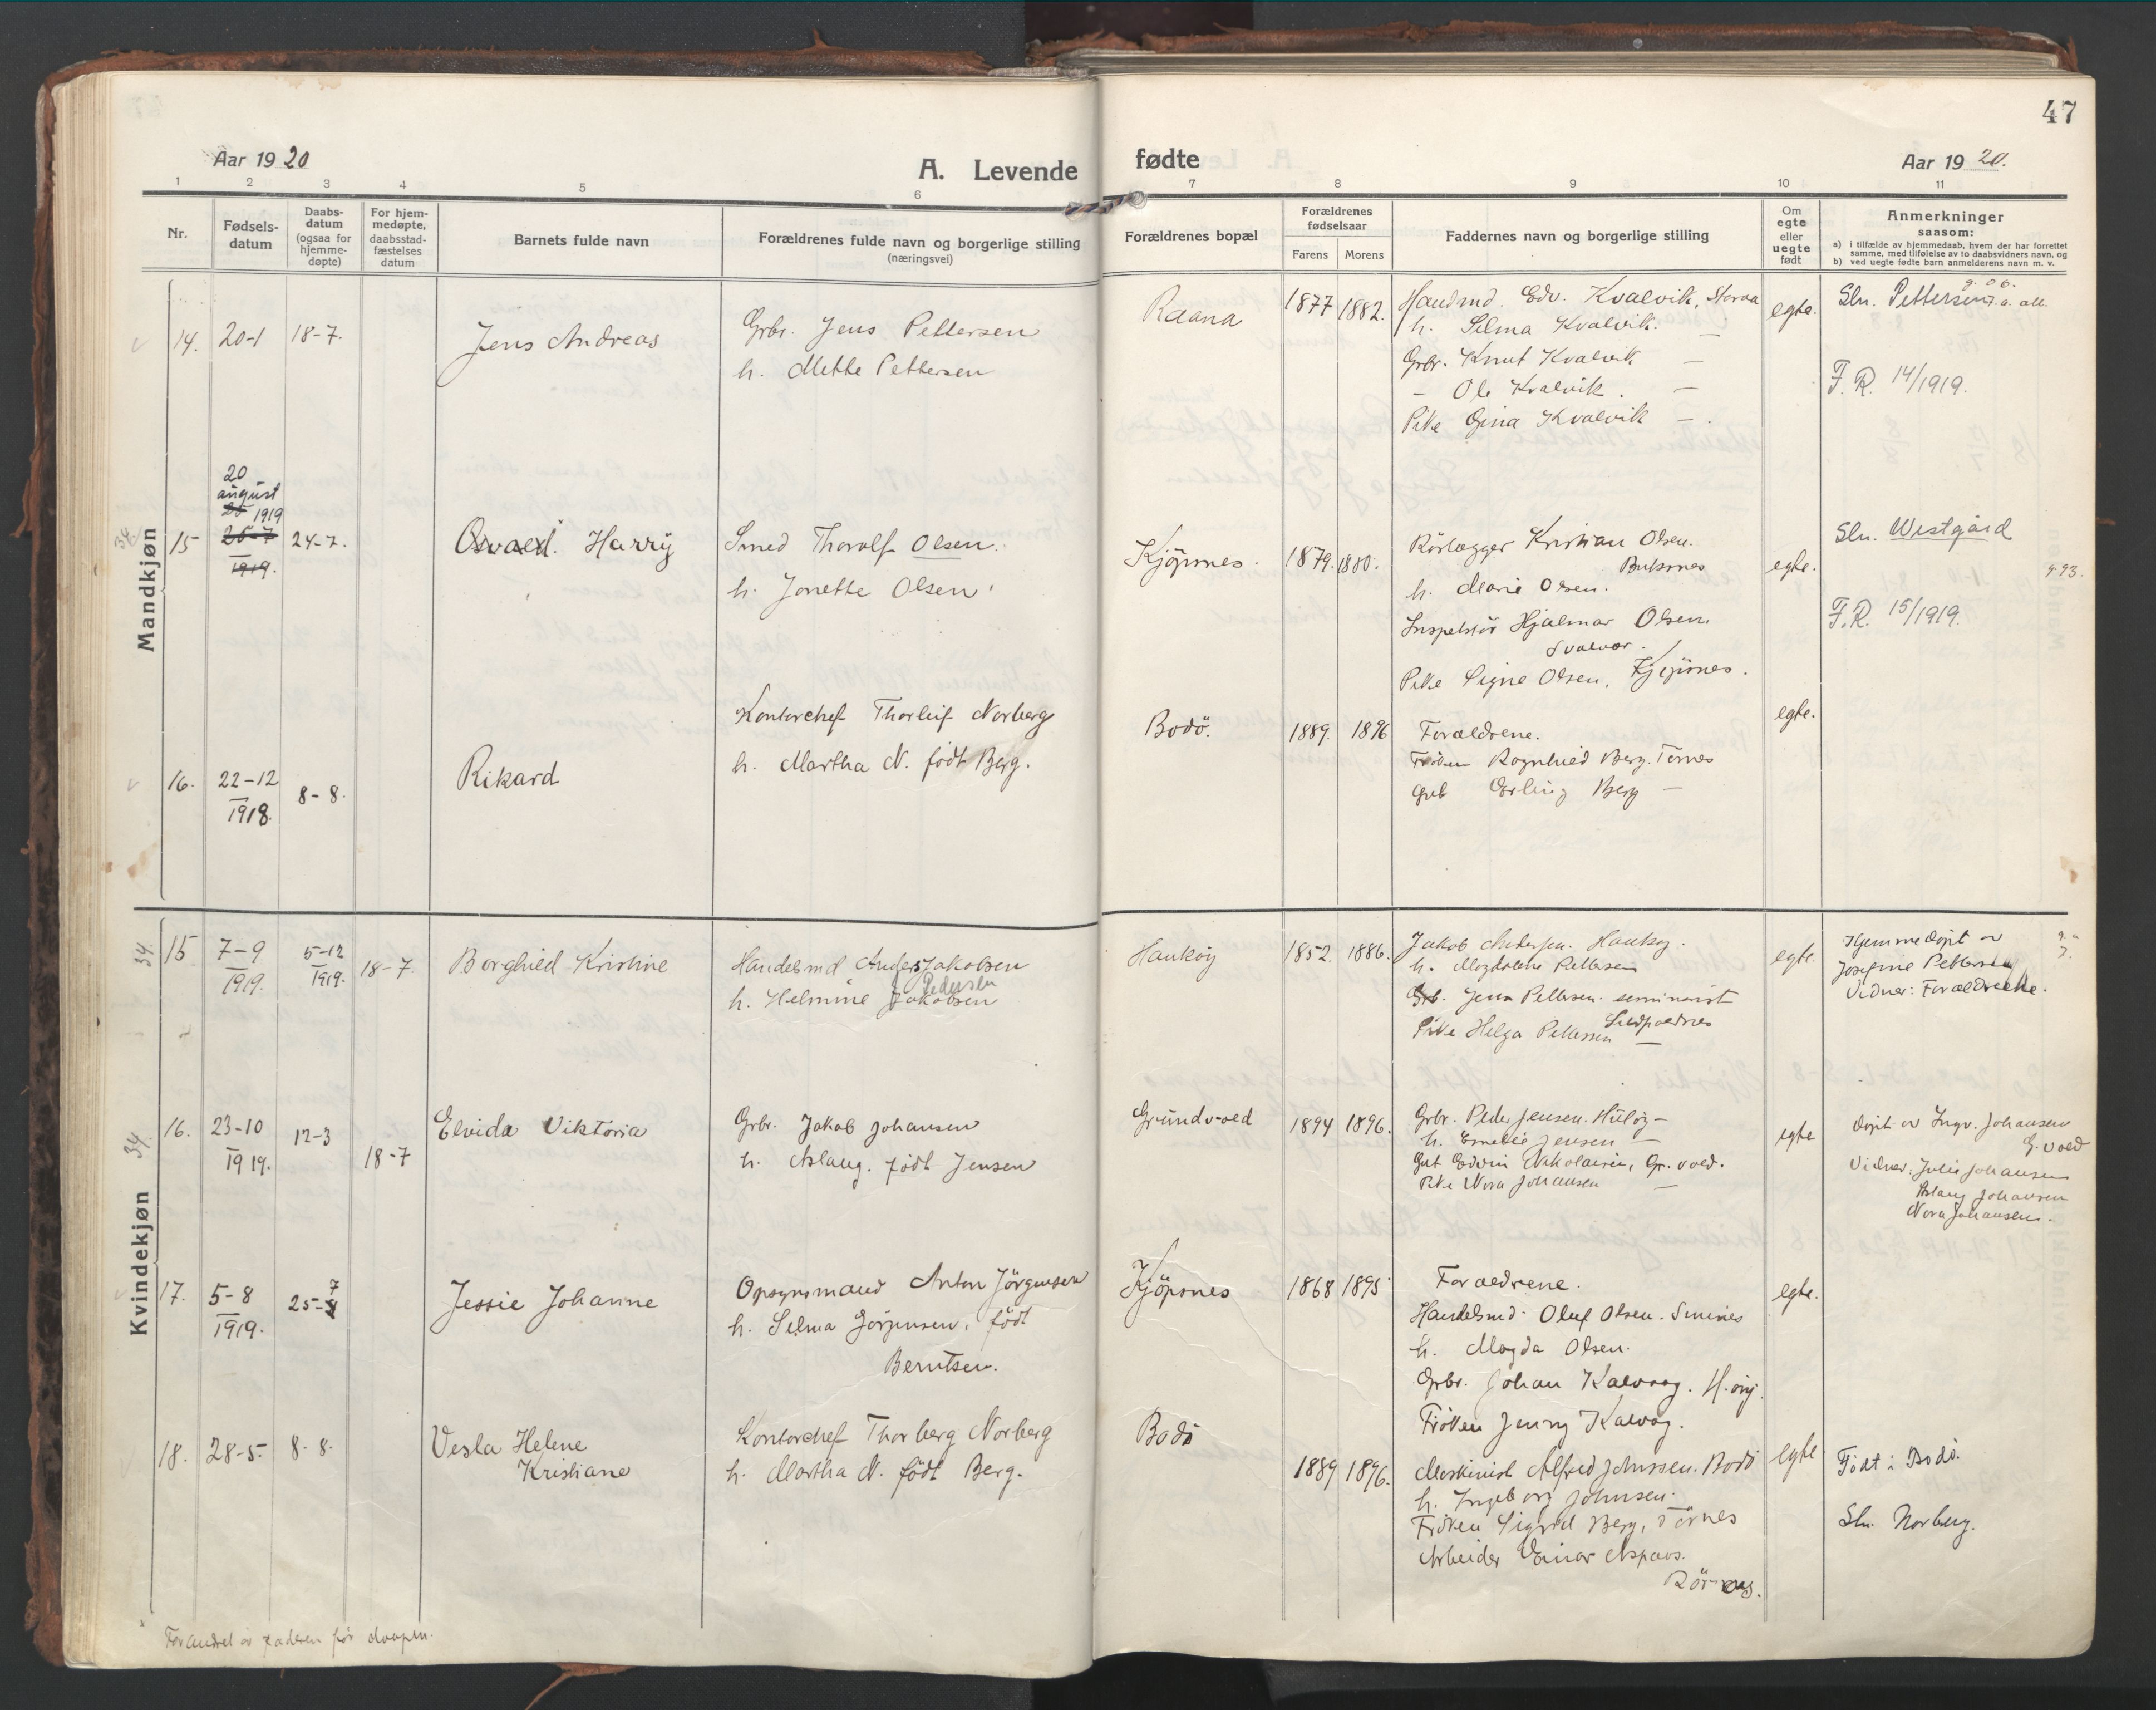 47
Aar 1920
A. Levende
fødte
Aar 1920.
1 2 3 4 5 6 7 8 9 10 11
Nr.
Fødsels-
datum
Daabs-
datum
(ogsaa for
hjemme-
døpte)
For hjem-
medøpte,
daabsstad-
fæstelses
datum
Barnets fulde navn
Forældrenes fulde navn og borgerlige stilling
(næringsvei)
Forældrenes bopæl
Forældrenes
fødselsaar
Farens Morens
Faddernes navn og borgerlige stilling
Om
egte
eller
uegte
født
Anmerkninger
saasom:
a) i tilfælde av hjemmedaab, hvem der har forrettet
samme, med tilføielse av to daabsvidners navn, og
b) ved uegte fødte barn anmelderens navn m. v.
Mandkjøn
14. 20-1 18-7.
Jens Andreas
Grbr. Jens Pettersen
h. Mette Pettersen
Raana
1877 1882.
Handmd. Edv. Kvalvik,
h. Selma Kvalvik. —
Grbr. Knut Kvalvik —
- Ole Kvalvik. —
Pike Gina Kvalvik —.
egte.
Sln. Pettersen
F.R. 14/1919.
34.
15
20
august
25 1919
26-7
1919.
24-7.
Osvald. Harry
Smed Thoralf Olsen.
h. Jonette Olsen.
Kjöpsnes.
1879. 1880.
Rörlægger Kristian Olsen.
Buksnes
h. Marie Olsen.
Inspektör Hjalmar Olsen.
Svolvær.
Pike Signe Olsen, Kjöpsnes.
egte.
Sln. Westgård
F.R. 15/1919.
9-93.
16. 22-12
1918.
8-8.
Rikard
Kontorchef Thorleif Norberg
h. Martha N. født Berg.
Bodö.
1889. 1896
Forældrene.
Fröken Ragnhild Berg. Törnes
Gut Erling Berg —
egte.
Kvindekjøn
34.
15 7-9
1919.
5-12
1919.
18-7.
Borghild Kristine
Handelsmd Anders Jakobsen
Pedersen
h. Helmine Jakobsen
Hauköy
1852. 1886.
Jakob Andersen. Hauköy.
h. Magdalene Pettersen
Grb. Jens Pettersen. seminarist
Pike Helga Pettersen —
egte.
Hjemmedöpt av
Josefine Pettersen
Vidner: Forældrene.
34.
16. 23-10
1919.
12-3
18-7
Elvida Viktoria
Grbr. Jakob Johansen
h. Aslaug. född Jensen
Grundvold
1894 1896.
Grbr. Peder Jensen. Hulöy —
h. Emelie Jensen —
Gut Edvin Nikolaisen, Gr. vold.
Pike Nora Johansen —
egte
döpt av Ingv. Johansen
G. vold
Vidner: Julie Johansen
Aslaug Johansen
Nora Johansen.
17. 5-8
1919.
25-7
Jessie Johanne
Opsynsmand Anton Jörgensen
h. Selma Jörgensen, född
Berntsen.
Kjöpsnes
1868 1895
Forældrene.
Handelsmd. Oluf Olsen.
h. Magda Olsen.
Grbr. Johan Kalvaag. H.öy.
Fröken Jenny Kalvåg.
egte.
18. 28-5. 8-8.
Vesla Helene
Kristiane
Kontorchef Thorberg Norberg
h. Martha N. född Berg.
Bodö
1889 1896.
Maskinist Alfred Johnsen. Bodö
h. Ingeborg Johnsen.
Fröken Sigrid Berg, Törnes
Arbeider Einar Aspaas.
Rör-
egte
Födt i Bodö.
Sln. Norberg.
Forandret av faderen før daapen.